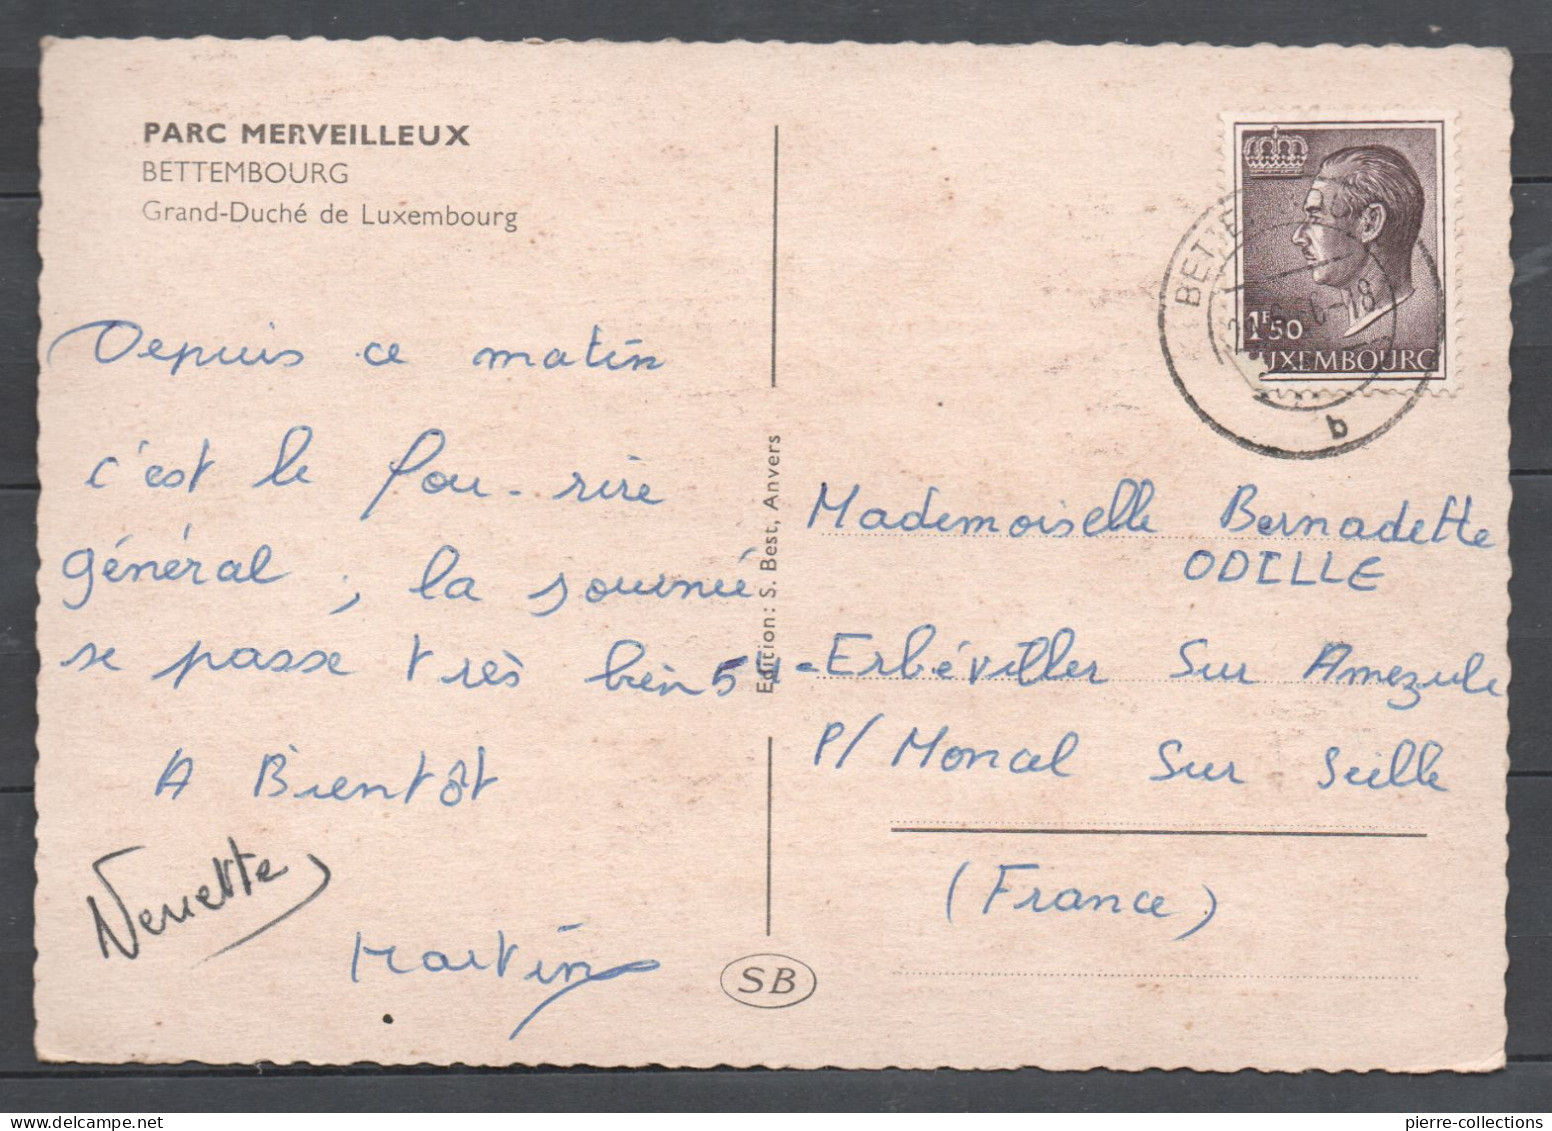 PARC MERVEILLEUX
BETTEMBOURG
Grand-Duché de Luxembourg
Depuis ce matin
c'est le fou-rire
général, la journée
se passe très bien
A Bientôt
Martin
Edition: S. Best, Anvers
SB
1F50
LUXEMBOURG
b
Mademoiselle Bernadette
ODILLE
54 - Erbéviller Sur Amezule
P/ Moncel Sur Seille
(France)
pierre-collections